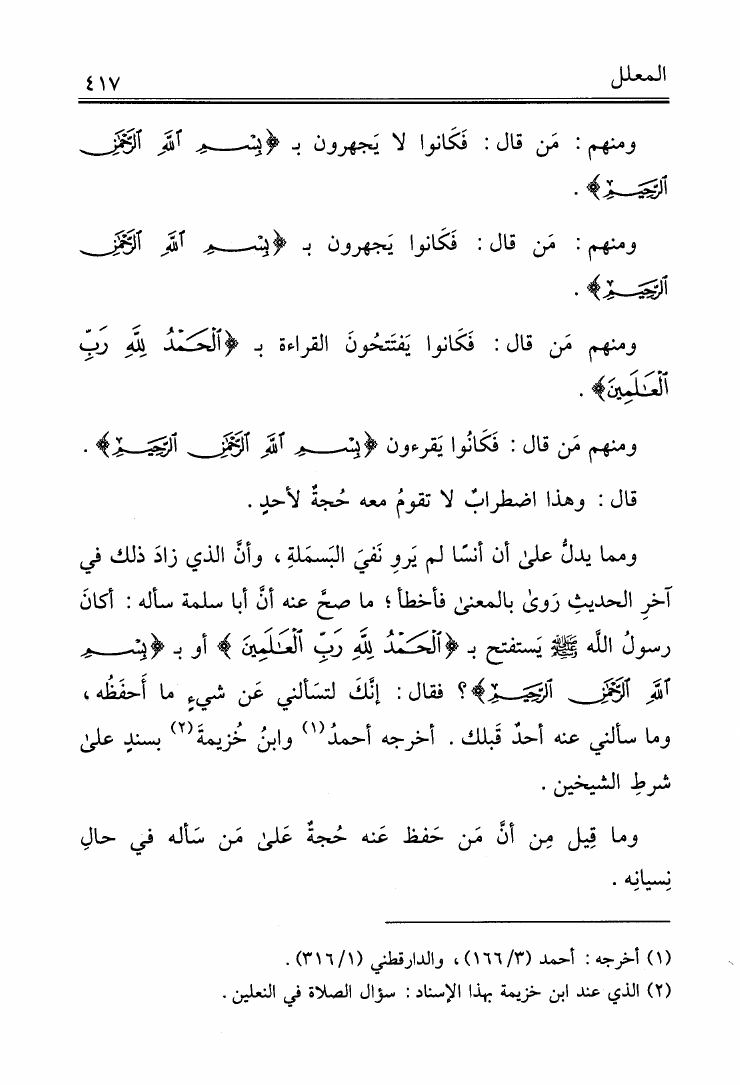 المعلل ٤١٧
ومنهم : مَن قال : فَكَانوا لا يَجهرون بـ ﴿بِسْمِ ٱللَّهِ ٱلرَّحْمَٰنِ
ٱلرَّحِيمِ﴾ .
ومنهم : مَن قال : فَكَانوا يَجهرون بـ ﴿بِسْمِ ٱللَّهِ ٱلرَّحْمَٰنِ
ٱلرَّحِيمِ﴾ .
ومنهم مَن قال : فَكَانوا يَفتَتحُونَ القراءة بـ ﴿ٱلْحَمْدُ لِلَّهِ رَبِّ
ٱلْعَٰلَمِينَ﴾ .
ومنهم مَن قال : فَكَانُوا يَقرءون ﴿بِسْمِ ٱللَّهِ ٱلرَّحْمَٰنِ ٱلرَّحِيمِ﴾ .
قال : وهذا اضطرابٌ لا تقومُ معه حُجةٌ لأحدٍ .
ومما يدلُّ علىٰ أن أنسًا لم يَروِ نَفيَ البَسمَلةِ ، وأنَّ الذي زادَ ذلك في
آخرِ الحديثِ رَوىٰ بالمعنىٰ فأخطأ ؛ ما صحَّ عنه أنَّ أبا سلمة سأله : أكانَ
رسولُ اللَّه ﷺ يَستفتح بـ ﴿ٱلْحَمْدُ لِلَّهِ رَبِّ ٱلْعَٰلَمِينَ﴾ أو بـ ﴿بِسْمِ
ٱللَّهِ ٱلرَّحْمَٰنِ ٱلرَّحِيمِ﴾ ؟ فقال : إنَّكَ لتسَألني عَن شيءٍ ما أَحفَظُه ،
وما سألني عنه أحدٌ قَبلك . أخرجه أحمدُ(١) وابنُ خُزيمةَ(٢) بسندٍ علىٰ
شرطِ الشيخين .
وما قِيل مِن أنَّ مَن حَفظ عَنه حُجةٌ عَلىٰ مَن سَأله في حالِ
نِسيانِه .
(١) أخرجه : أحمد (٣/ ١٦٦) ، والدارقطني (١/ ٣١٦) .
(٢) الذي عند ابن خزيمة بهذا الإسناد : سؤال الصلاة في النعلين .